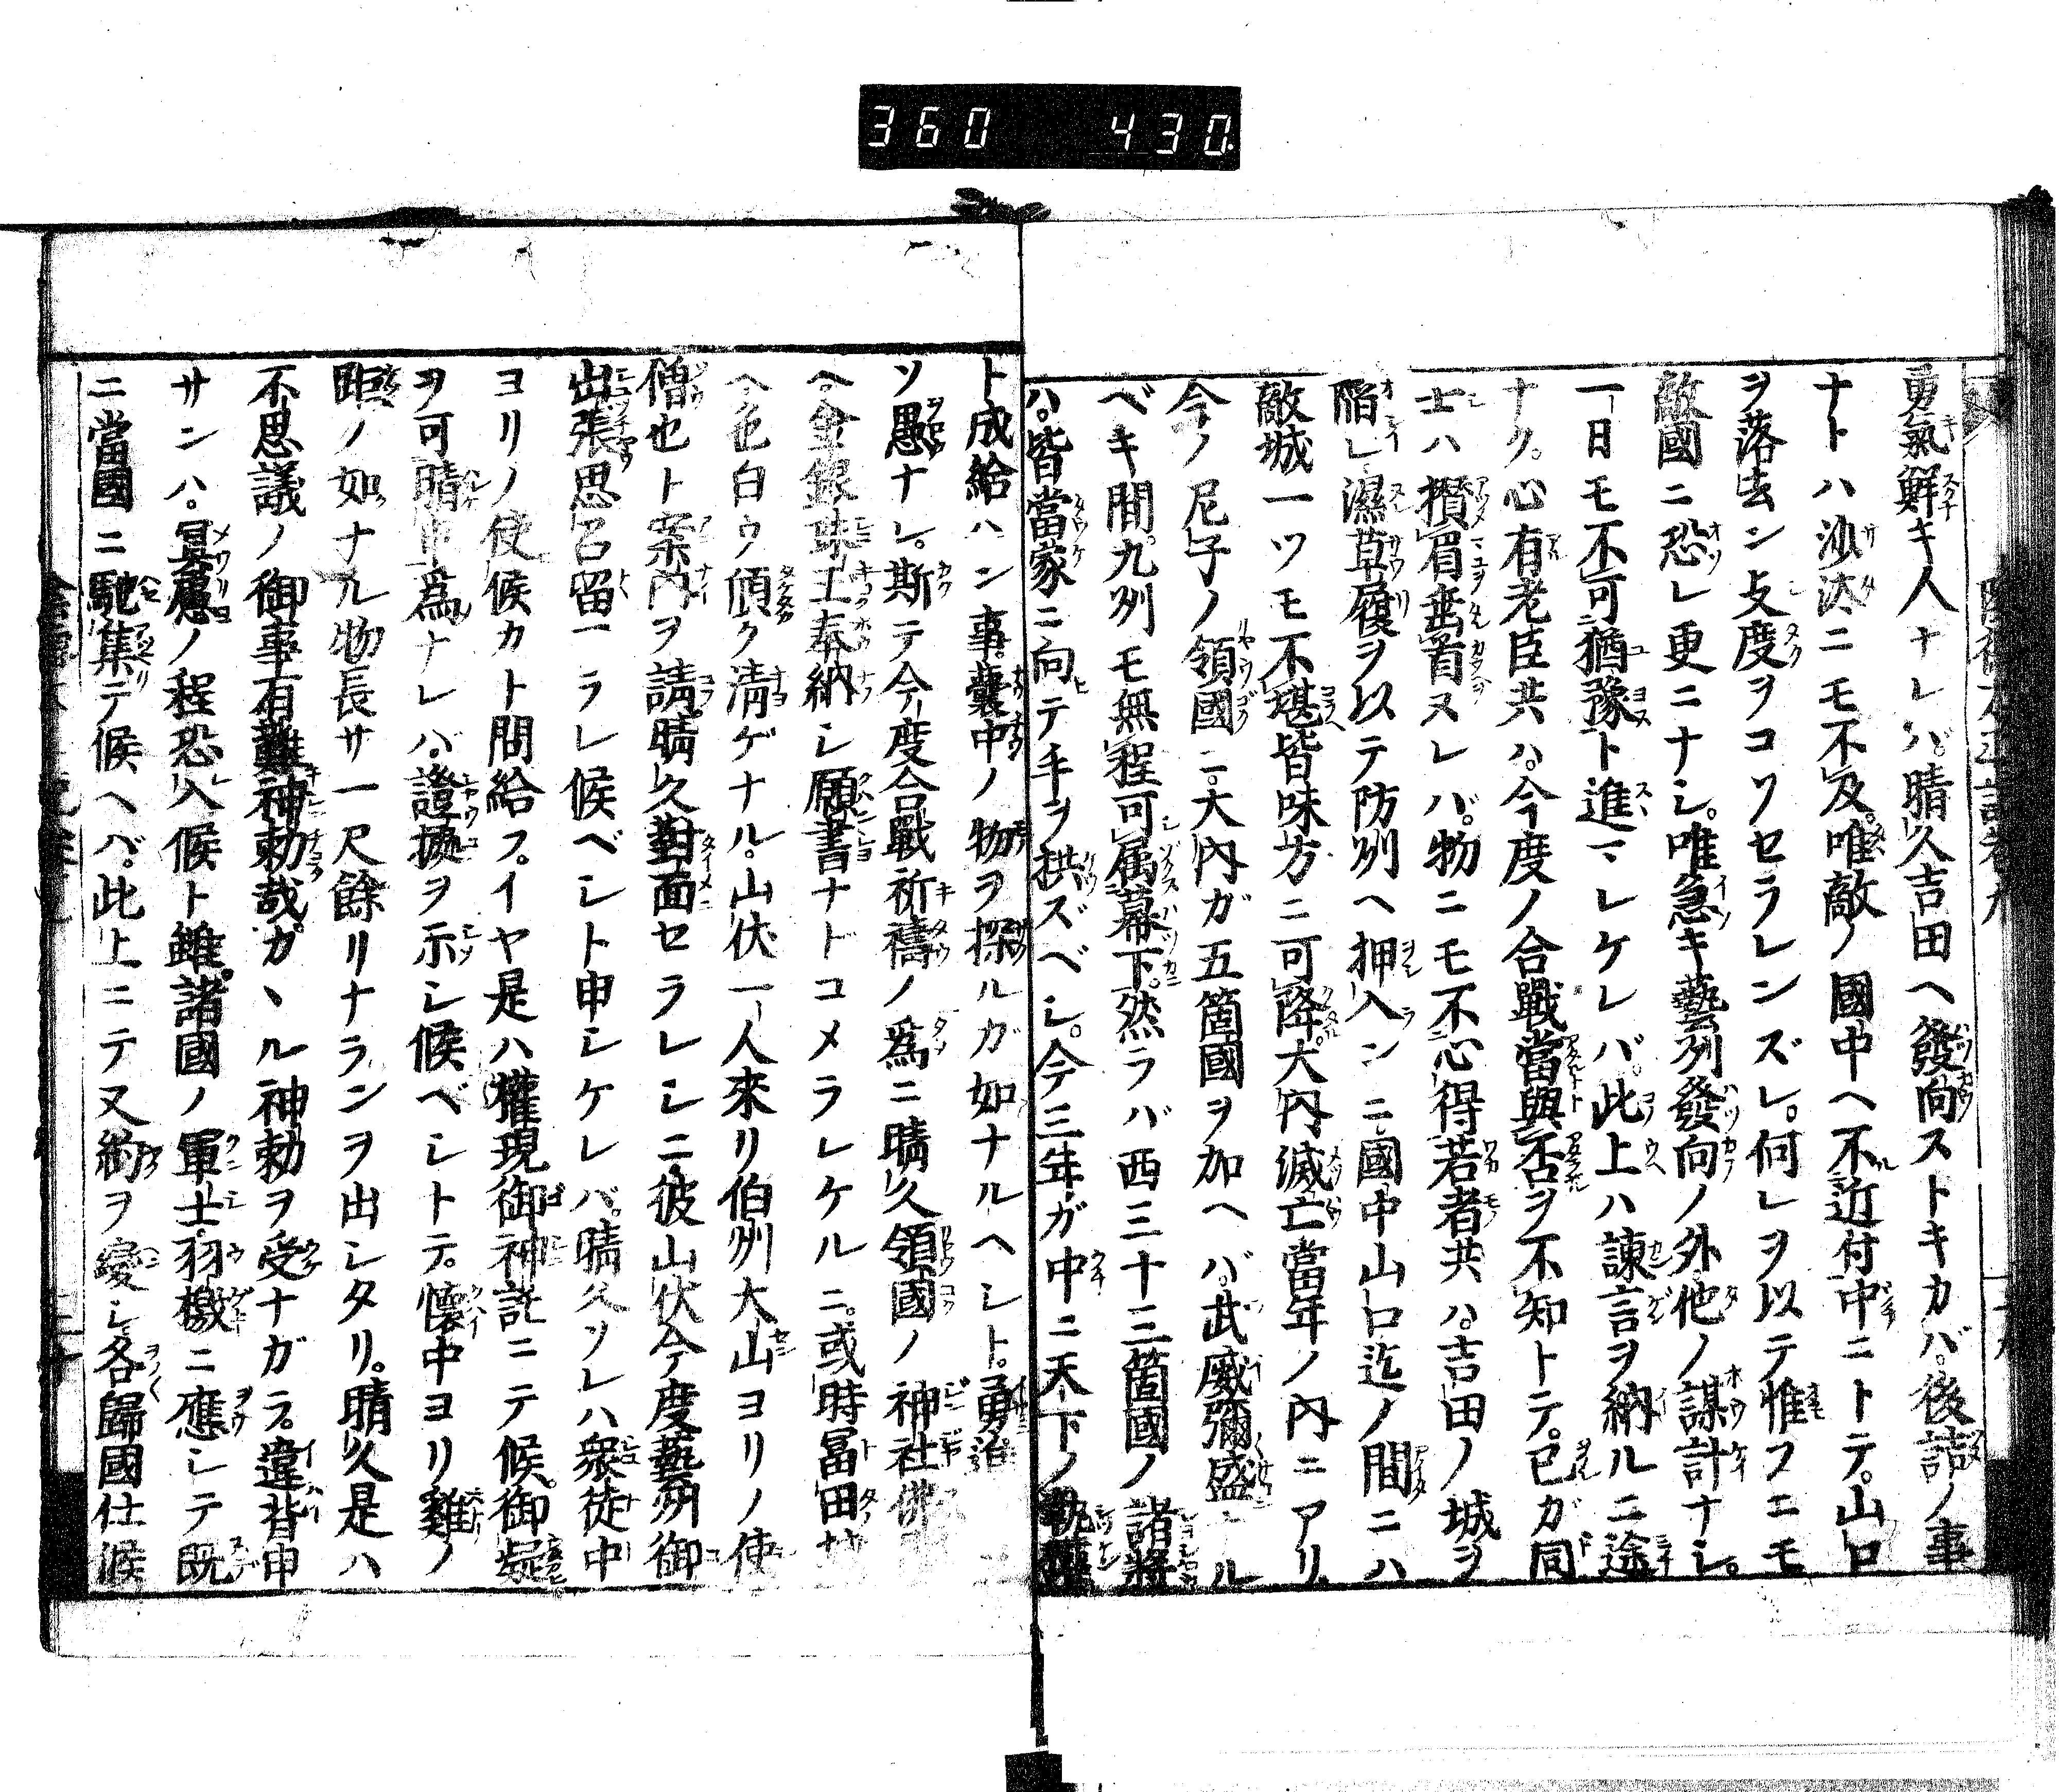 360 430
勇氣鮮キ人ナレバ。晴久吉田ヘ發向ストキカバ。後詰ノ事
ナトハ沙汰ニモ不及。唯敵ノ國中ヘ不近付中ニトテ。山口
ヲ落去ン支度ヲコソセラレンズレ。何レヲ以テ惟フニモ
敵國ニ恐レ更ニナシ。唯急キ藝州發向ノ外他ノ謀計ナシ。
一日モ不可猶豫ト進マレケレバ。此上ハ諫言ヲ納ルニ途
ナク。心有老臣共ハ。今度ノ合戰當與否ヲ不知トテ。已ガ同
士ハ攅眉垂首ヌレバ。物ニモ不心得若者共ハ。吉田ノ城ヲ
陥レ濕草履ヲ以テ防州ヘ押入ンニ國中山口迄ノ間ニハ
敵城一ツモ不堪皆味方ニ可降。大内滅亡當年ノ内ニアリ
今ノ尼子ノ領國ニ。大内ガ五箇國ヲ加ヘバ。武威彌盛ナル
ベキ間。九州モ無程可属幕下。然ラバ西三十三箇國ノ諸將
ハ。皆當家ニ向テ手ヲ拱ズベシ。今三年ガ中ニ天下ノ執權
ト成給ハン事。嚢中ノ物ヲ探ルガ如ナルヘシト。勇
ソ愚ナレ。斯テ今度合戰祈禱ノ爲ニ晴久領國ノ神社佛
ヘ。金銀珠玉奉納シ願書ナドコメラレケルニ。或時冨田
ヘ色白ウ頎ク清ゲナル。山伏一人來リ伯州大山ヨリノ使
僧也ト案内ヲ請。晴久對面セラレシニ彼山伏今度藝州御
出張思召留マラレ候ベシト申シケレバ。晴久ソレハ衆徒中
ヨリノ使候カト問給フ。イヤ是ハ權現御神託ニテ候。御疑
ヲ可晴申爲ナレバ。證拠ヲ示シ候ベシトテ。懐中ヨリ雞ノ
距ノ如ナル物長サ一尺餘リナランヲ出シタリ。晴久是ハ
不思議ノ御事有難神勅哉。カヽル神勅ヲ受ナガラ。違背申
サンハ。冥慮ノ程恐入候ト雖。諸國ノ軍士羽檄ニ應シテ既
ニ當國ニ馳集テ候ヘバ。此上ニテ又約ヲ變シ各歸國仕候